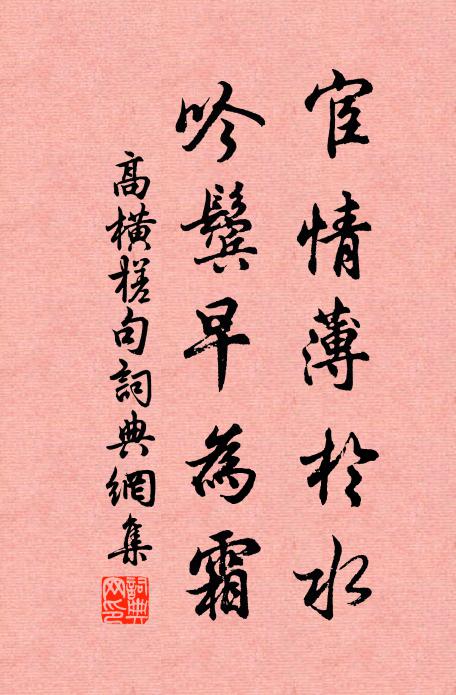 宦情薄於水
吟鬢早為霜
高横槎句詞典網集
詞典网印